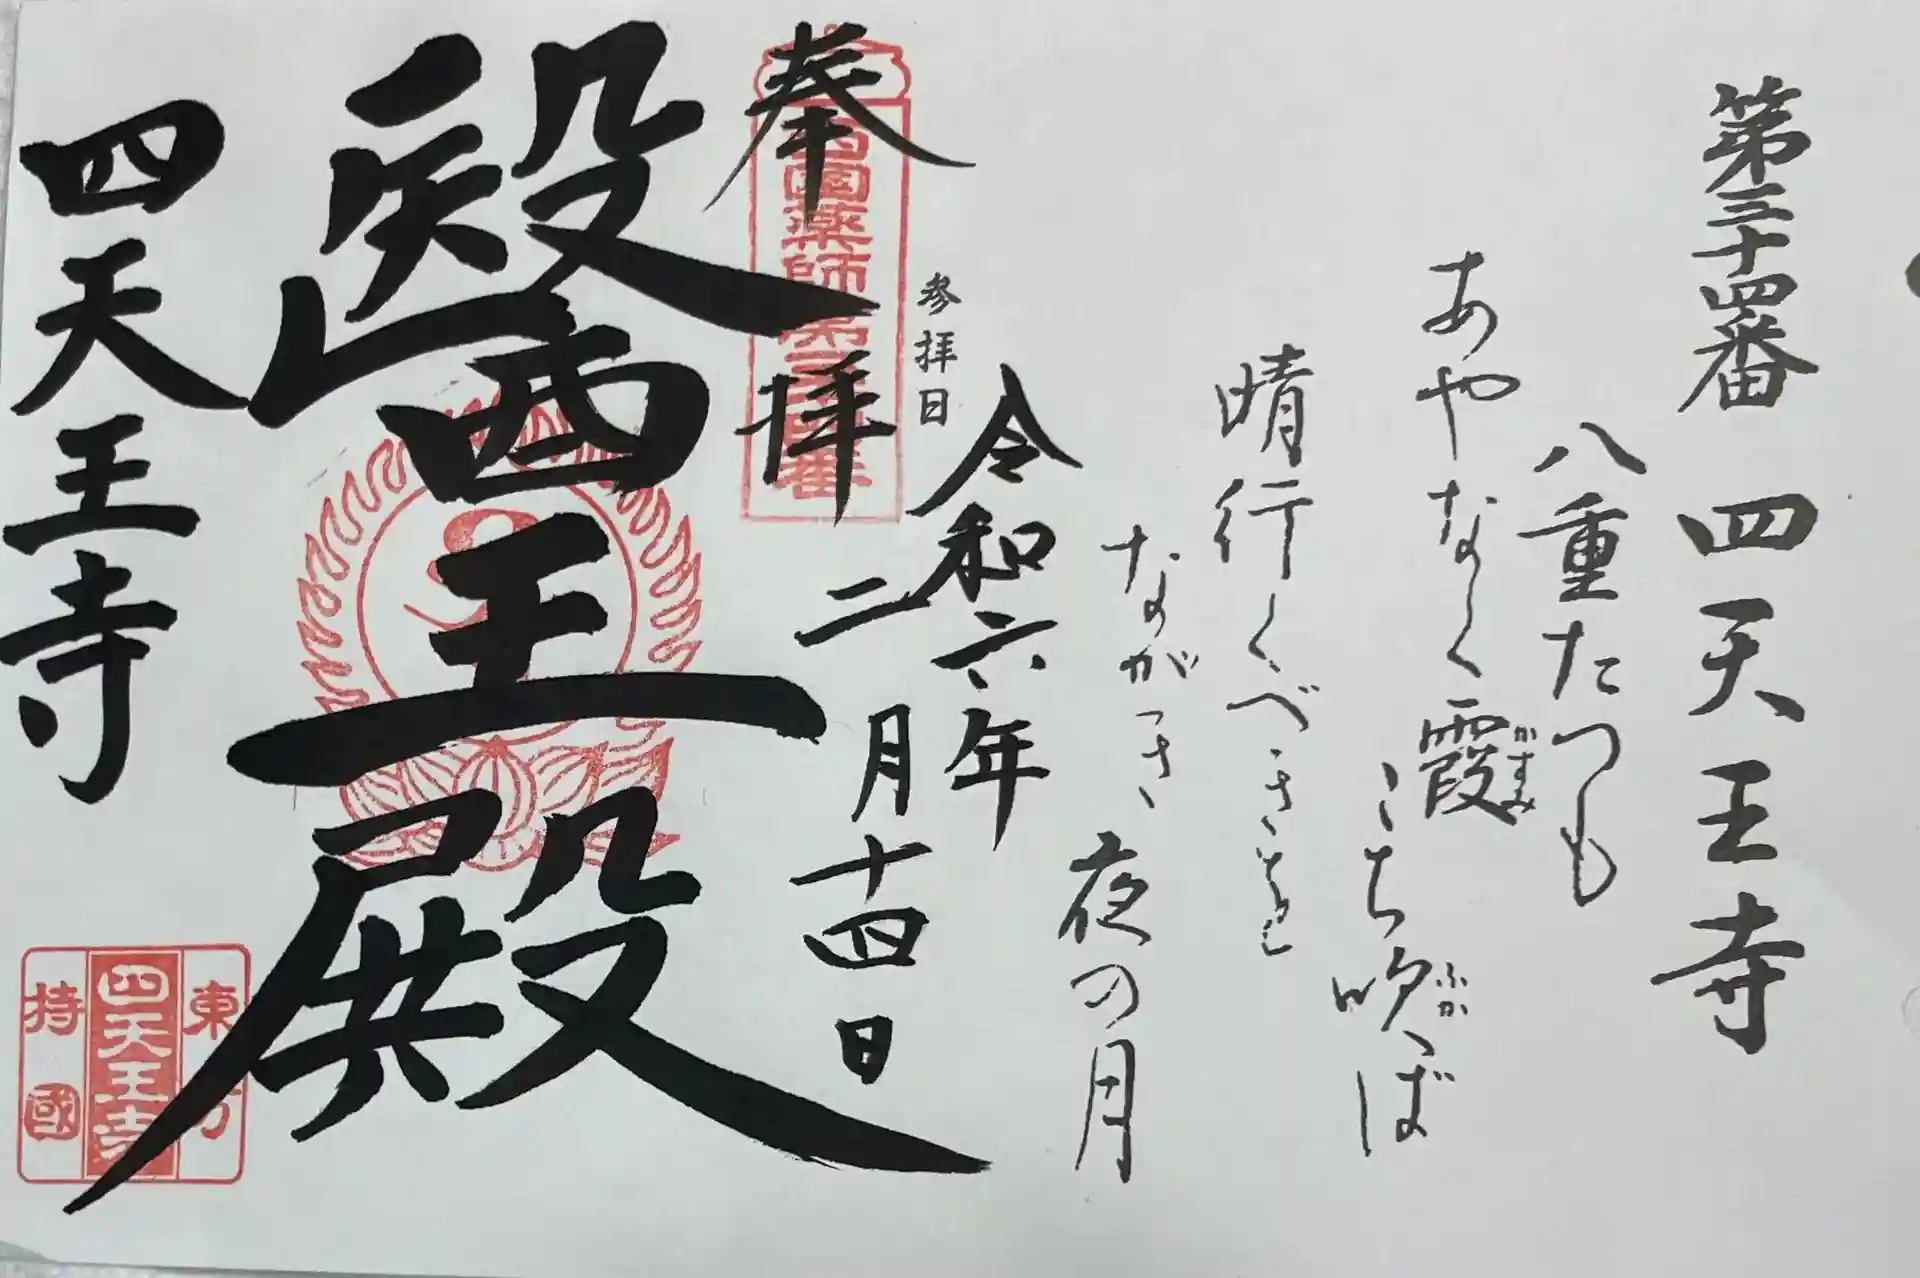 第三十四番 四天王寺
八重たつも
あやなく霞
がすみ
こち吹ば
ふか
晴行くべきさほと
ながき夜の月
参拝日
令和六年
二月十四日
奉拝
醫王殿
四天王寺
東
四天王寺
持國